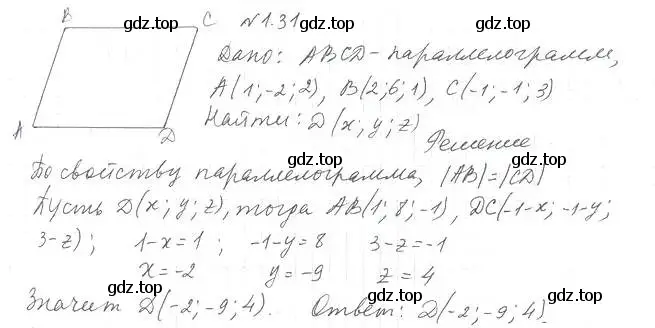 B C №1.31 gdz.top
gdz.top gdz.top
Дано: ABCD - параллелограмм,
A(1;-2;2), B(2;6;1), C(-1;-1;3)
gdz.top
Найти: D(x; y; z)
A D
gdz.top
Решение
gdz.top gdz.top
По свойству параллелограмма, |AB|=|CD|
Пусть D(x; y; z), тогда AB(1; 8; -1), DC(-1-x; -1-y;
3-z); 1-x=1 ; -1-y=8 3-z=-1
x=-2 y=-9 z=4
gdz.top gdz.top gdz.top
Значит D(-2; -9; 4). Ответ: D(-2; -9; 4).
gdz.top gdz.top